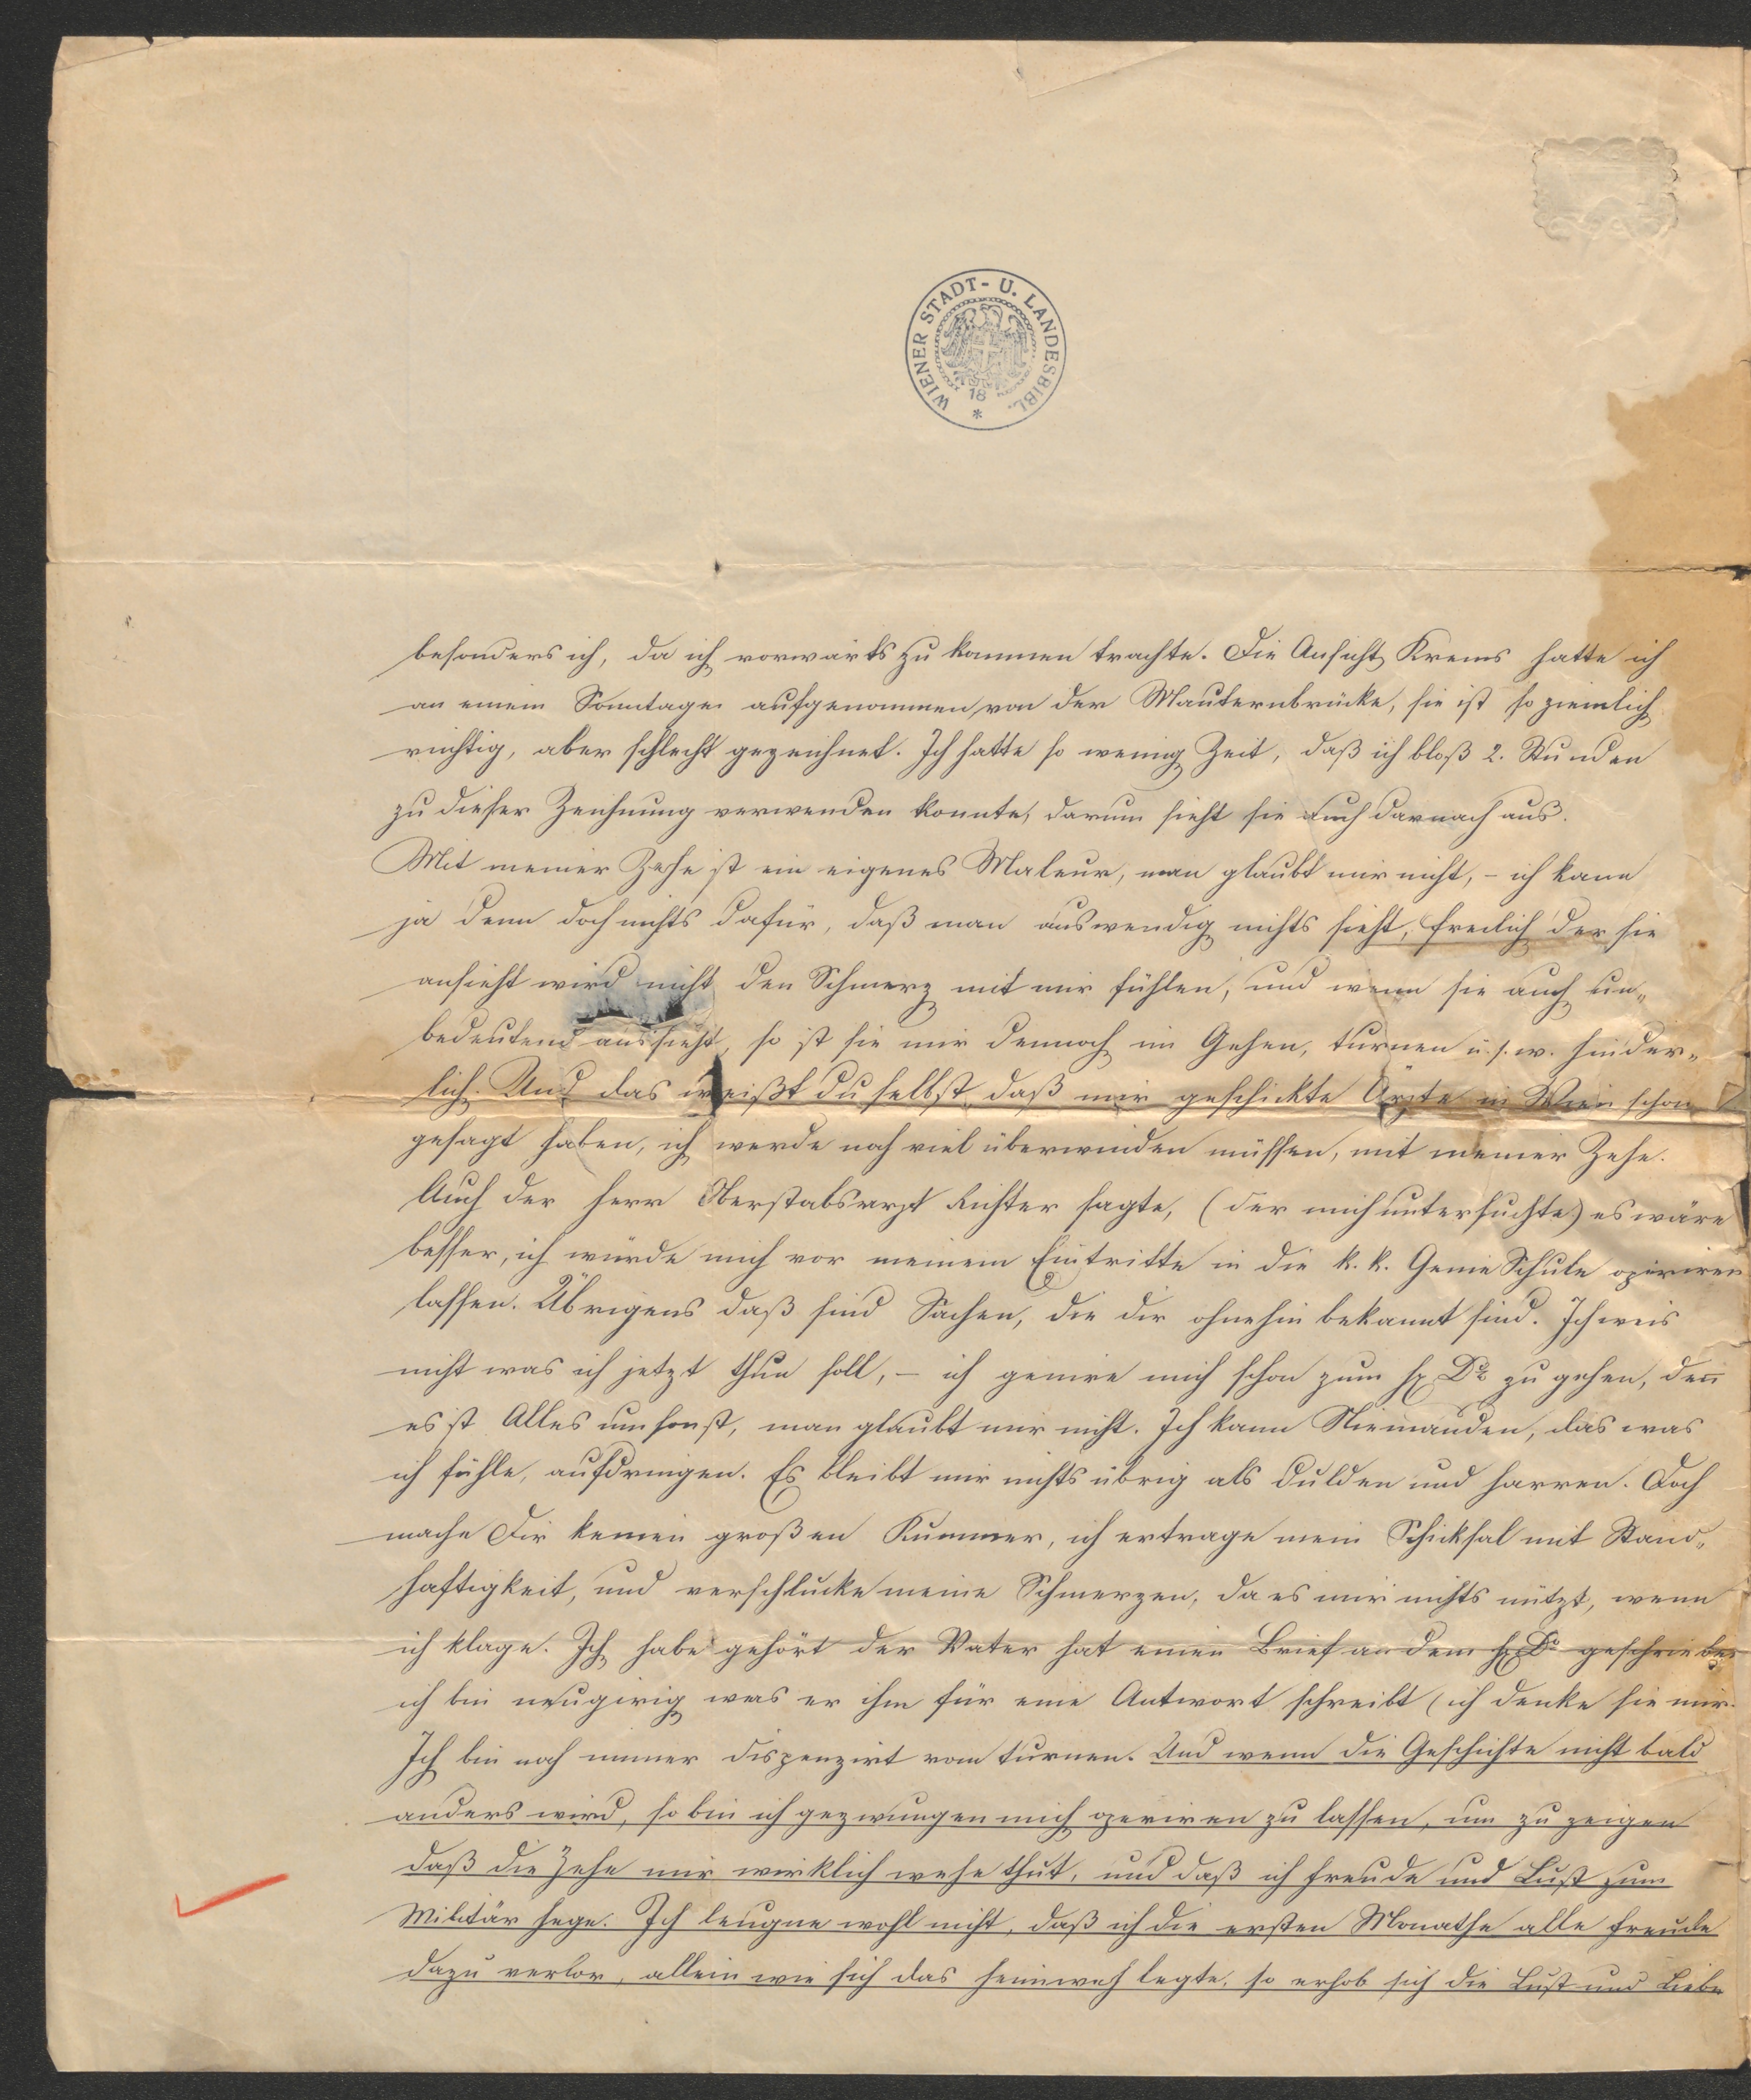 WIENER STADT- U. LANDESBIBL.
18
*
besonders ich, da ich vorwärts zu kommen trachte. Die Ansicht Krems hatte ich
an einem Sonntage aufgenommen von der Mauternbrücke, sie ist so ziemlich
richtig, aber schlecht gezeichnet. Ich hatte so wenig Zeit, daß ich bloß 2. Stunden
zu dieser Zeichnung verwenden konnte, darum sieht sie auch darnach aus.
Mit meiner Zehe ist ein eigenes Maleur, man glaubt mir nicht, – ich kann
ja denn doch nichts dafür, daß man auswendig nichts sieht, freilich der sie
ansieht wird nicht den Schmerz mit mir fühlen, und wenn sie auch un„
bedeutend aussieht, so ist sie mir dennoch im Gehen, turnen u.s.w. hinder„
lich. Und das weißt du selbst, daß mir geschickte Ärzte in Wien schon
gesagt haben, ich werde noch viel überwinden müssen, mit meiner Zehe.
Auch der Herr Oberstabsarzt Richter sagte, (der mich untersuchte) es wäre
besser, ich würde mich vor meinem Eintritte in die k. k. Genie Schule operiren
lassen. Übrigens daß sind Sachen, die dir ohnehin bekannt sind. Ich weis
nicht was ich jetzt thun soll, – ich genire mich schon zum H. Dr zu gehen, den̄
es ist Alles umsonst, man glaubt mir nicht. Ich kann Niemanden, das was
ich fühle, aufdringen. Es bleibt mir nichts übrig als dulden und harren. Doch
mache Dir keinen großen Kummer, ich ertrage mein Schicksal mit Stand„
haftigkeit, und verschlucke meine Schmerzen, da es mir nichts nützt, wenn
ich klage. Ich habe gehört der Vater hat einen Brief an dem H. Dr geschrieben
ich bin neugirig was er ihm für eine Antwort schreibt (ich denke sie mir.
Ich bin noch immer dispenzirt vom turnen. Und wenn die Geschichte nicht bald
anders wird, so bin ich gezwungen mich operiren zu lassen, um zu zeigen
daß die Zehe mir wirklich wehe thut, und daß ich Freude und Lust zum
Militär hege. Ich leugne wohl nicht, daß ich die ersten Monathe alle Freude
dazu verlor, allein wie sich das Heimweh legte, so erhob sich die Lust und Liebe